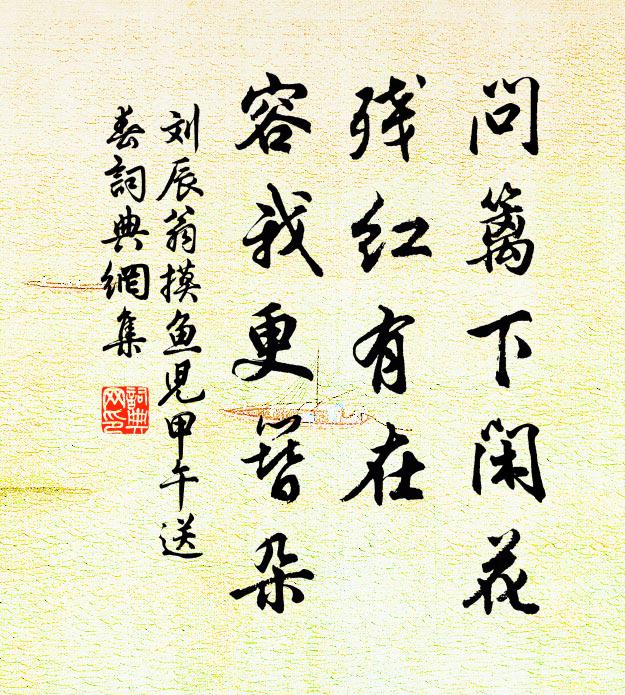 问篱下闲花
残红有在
容我更簪朵
刘辰翁摸鱼儿甲午送
春詞典網集
詞典
网印